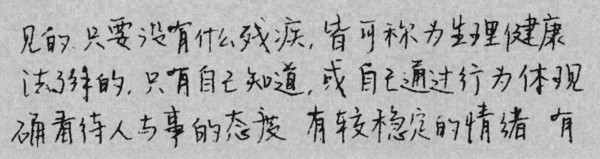 见的.只要没有什么残疾,皆可称为生理健康
法了解的,只有自己知道,或自己通过行为体现
确看待人与事的态度 有较稳定的情绪 有